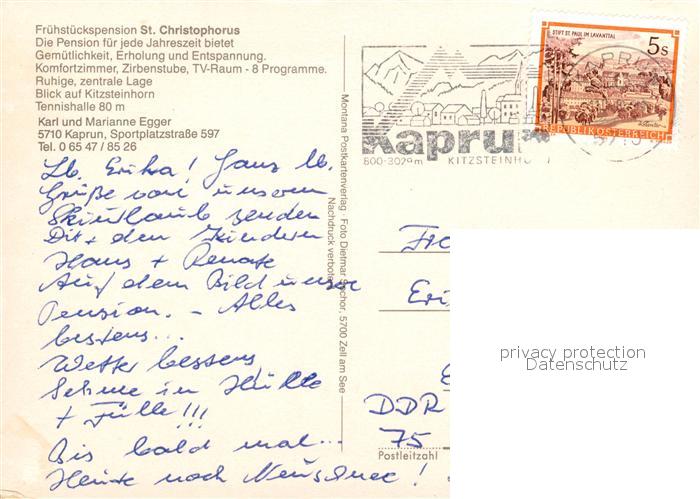 Frühstückspension St. Christophorus
Die Pension für jede Jahreszeit bietet
Gemütlichkeit, Erholung und Entspannung.
Komfortzimmer, Zirbenstube, TV-Raum - 8 Programme.
Ruhige, zentrale Lage
Blick auf Kitzsteinhorn
Tennishalle 80 m
Karl und Marianne Egger
5710 Kaprun, Sportplatzstraße 597
Tel. 0 65 47 / 85 26
Lb. Erika! Ganz lb.
Grüße von unserem
Skiurlaub senden
Dir + den Kindern
Hans + Renate
Auf dem Bild unsere
Pension. – Alles
bestens...
Wetter bestens,
Schnee in Hülle
+ Fülle!!!
Bis bald mal...
Heute noch Neuschnee!
Montana Postkartenverlag · Foto Dietmar Sochor, 5700 Zell am See
Nachdruck verboten
Kaprun
800-3029m KITZSTEINHO
STIFT ST. PAUL IM LAVANTTAL
5s
REPUBLIK ÖSTERREICH
DDR
75
Postleitzahl
privacy protection
Datenschutz